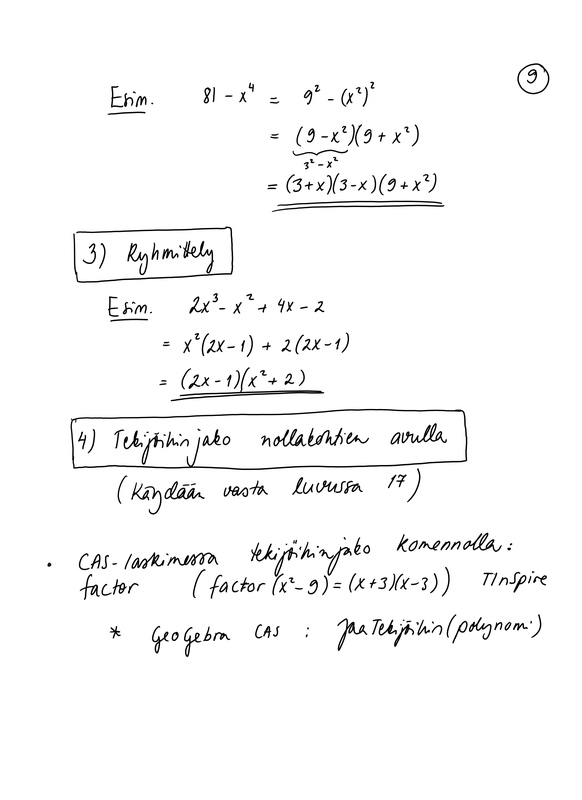 9
Esim. 81 - x⁴ = 9² - (x²)²
= (9 - x²)(9 + x²)
3² - x²
= (3+x)(3-x)(9+x²)
3) Ryhmittely
Esim. 2x³ - x² + 4x - 2
= x²(2x-1) + 2(2x-1)
= (2x-1)(x²+2)
4) Tekijöihin jako nollakohtien avulla
(Käydään vasta luvussa 17)
• CAS-laskimessa tekijöihinjako komennolla:
factor (factor(x²-9) = (x+3)(x-3)) TInspire
* GeoGebra CAS : JaaTekijöihin(polynomi)